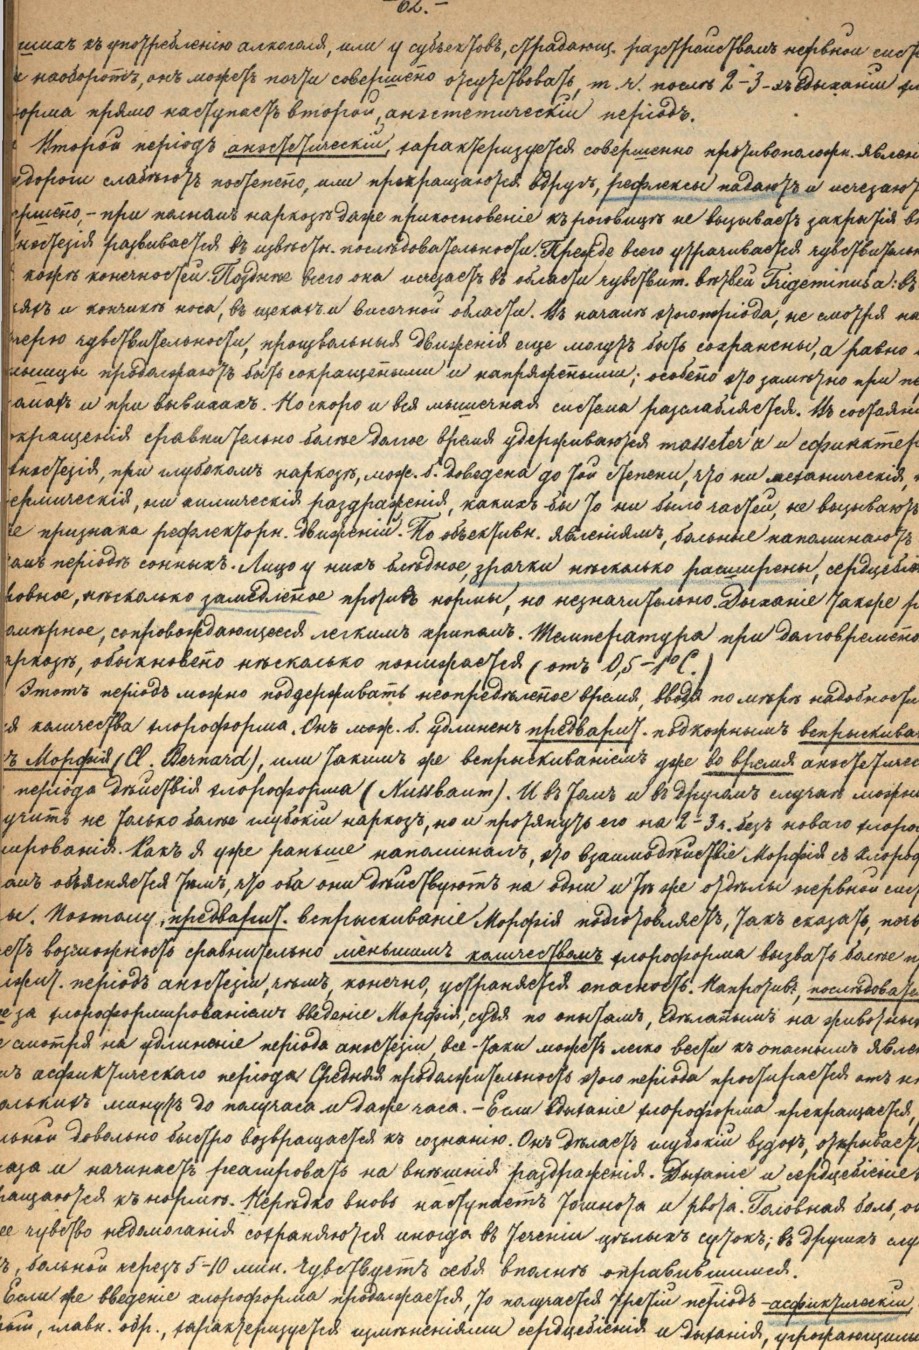 -62.-
къ употребленію алкоголя, или у субъектовъ, страдающ. разстройствомъ нервной
и наоборотъ, онъ можетъ почти совершенно отсутствовать, т. ч. послѣ 2-3-хъ вдыханій
прямо наступаетъ второй, анестетическій періодъ.
Второй періодъ анестетическій, характеризуется совершенно противоположн.
слабѣютъ постепенно, или прекращаются вдругъ, рефлексы падаютъ и исчезаютъ
- при полномъ наркозѣ даже прикосновеніе къ роговицѣ не вызываетъ закрытія
развивается въ извѣстн. послѣдовательности. Прежде всего утрачивается
кожѣ конечностей. Позднѣе всего она исчезаетъ въ области чувствит. вѣтвей Trigeminus'a: въ
и кончикѣ носа, въ щекахъ и височной области. Въ началѣ этого періода, не смотря на
чувствительности, произвольныя движенія еще могутъ быть сохранены, а равно
продолжаютъ быть сокращенными и напряженными; особенно это замѣтно при
и при вывихахъ. Но скоро и вся мышечная система разслабляется. Въ
сравнительно болѣе долгое время удерживаются masseter'ы и
при глубокомъ наркозѣ, мож. б. доведена до той степени, что ни механическія,
ни химическія раздраженія, какихъ бы то ни было частей, не вызываютъ
признака рефлекторн. движеній. По объективн. явленіямъ, больные напоминаютъ
періодѣ сонныхъ. Лицо у нихъ блѣдное, зрачки нѣсколько расширены,
нѣсколько замедленное противъ нормы, но незначительно. Дыханіе также
сопровождающееся легкимъ хрипомъ. Температура при
обыкновенно нѣсколько понижается (отъ 0,5-1°С.)
Этотъ періодъ можно поддерживать неопредѣленное время, вводя по мѣрѣ надобности
количества хлороформа. Онъ мож. б. удлиненъ предварит. подкожнымъ
Морфія (Cl. Bernard), или такимъ же впрыскиваніемъ уже во время
періода дѣйствія хлороформа (Nussbaum). И въ томъ и въ другомъ случаѣ
не только болѣе глубокій наркозъ, но и протянуть его на 2-3 ч. безъ новаго
Какъ я уже раньше напоминалъ, это взаимодѣйствіе Морфія съ
объясняется тѣмъ, что оба они дѣйствуютъ на одни и тѣ же отдѣлы нервной
Поэтому, предварит. впрыскиваніе Морфія подготовляетъ, такъ сказать,
возможность сравнительно меньшимъ количествомъ хлороформа вызвать болѣе
періодъ анестезіи, чѣмъ, конечно, устраняется опасность. Напротивъ,
за хлороформированіемъ введеніе Морфія, судя по опытамъ, сдѣланнымъ на
смотря на удлиненіе періода анестезіи, все-таки можетъ легко вести къ опаснымъ
асфиктическаго періода. Средняя продолжительность этого періода простирается отъ
минутъ до получаса и даже часа. - Если вдыханіе хлороформа прекращается,
довольно быстро возвращается къ сознанію. Онъ дѣлаетъ глубокій вздохъ, открываетъ
и начинаетъ реагировать на внѣшнія раздраженія. Дыханіе и сердцебіеніе
къ нормѣ. Нерѣдко вновь наступаетъ тошнота и рвота. Головная боль,
чувство недомоганія сохраняются иногда въ теченіи цѣлыхъ сутокъ; въ другихъ
больной черезъ 5-10 мин. чувствуетъ себя вполнѣ оправившимся.
Если же введеніе хлороформа продолжается, то получается третій періодъ - асфиктическій
главн. обр., характеризуется измѣненіями сердцебіенія и дыханія,